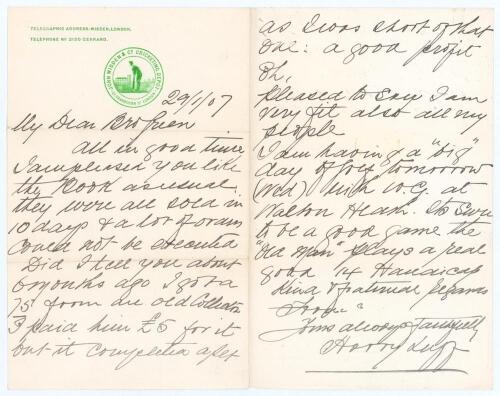 TELEGRAPHIC ADDRESS: WISDEN, LONDON.
TELEPHONE Nº 2100 GERRARD.
JOHN WISDEN & Cº CRICKETING DEPOT
29/1/07
My Dear Bro Green
All in good time
I am pleased you like
the Book as usual.
they were all sold in
10 days & a lot of orders
could not be executed
Did I tell you about
6 months ago I got a
75 from an old Collector
I paid him £5 for it
but it completed a set
as I was short of that
one: a good profit
Oh,
Pleased to say I am
very fit also all my
people
I am having a "big"
day of golf tomorrow
(Wed) with W.G. at
Walton Heath. Its sure
to be a good game the
"Old Man" plays a real
good 14 Handicap
Kind & fraternal regards
from
Yours always faithfully
Harry Luff